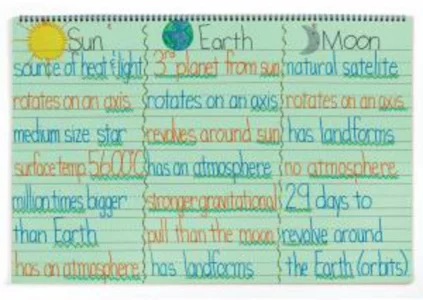 Sun
source of heat & light
rotates on an axis
medium size star
surface temp. 5600°C
million times bigger
than Earth
has an atmosphere
Earth
3rd planet from sun
rotates on an axis
revolves around sun
has an atmosphere
stronger gravitational
pull than the moon
has landforms
Moon
natural satellite
rotates on an axis
has landforms
no atmosphere
29 days to
revolve around
the Earth (orbits)